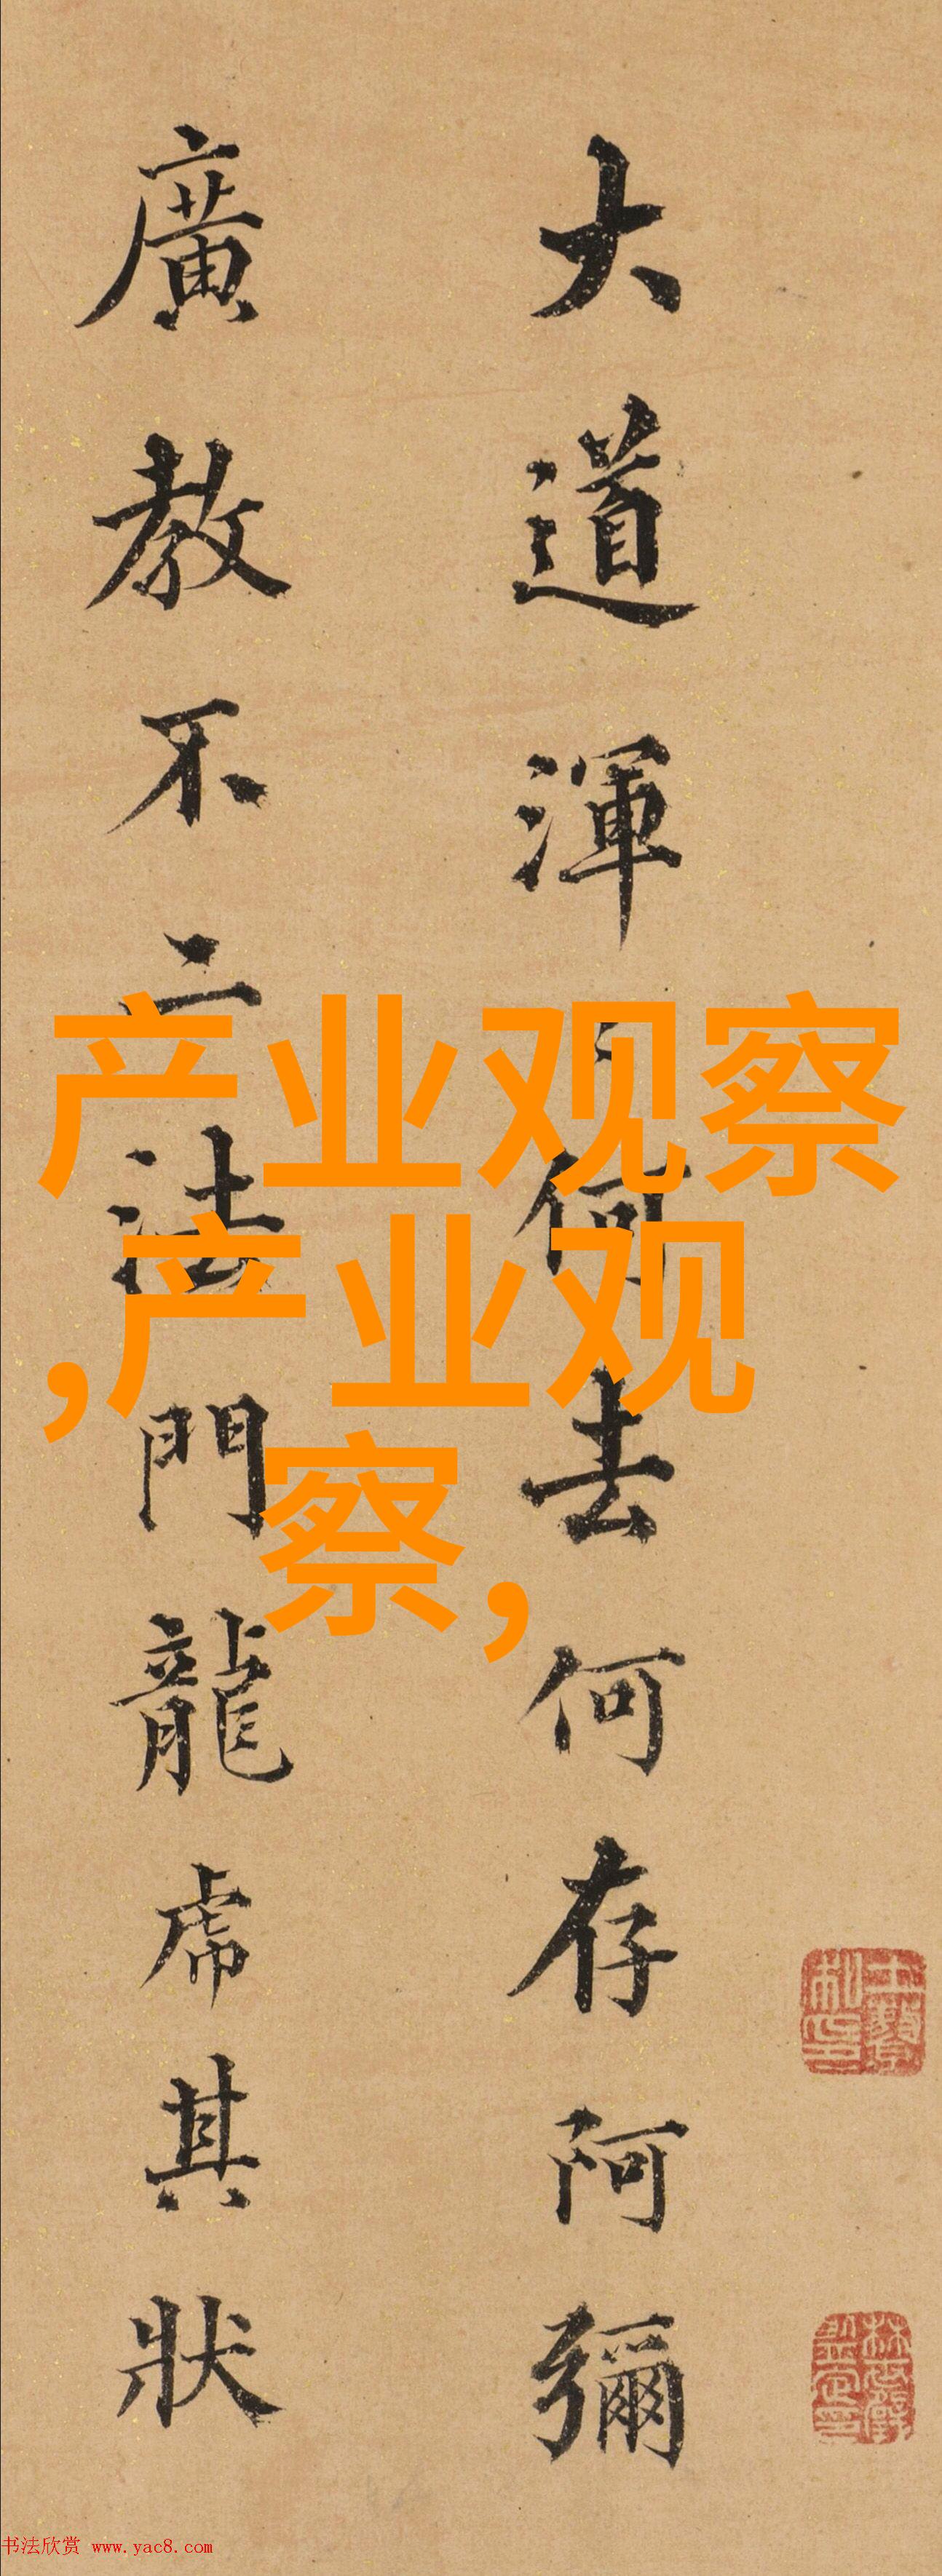 大道渾何去何存阿彌
廣教不二法門龍虎其狀
产业观察
,产业观
察,
书法欣赏 www.yac8.com